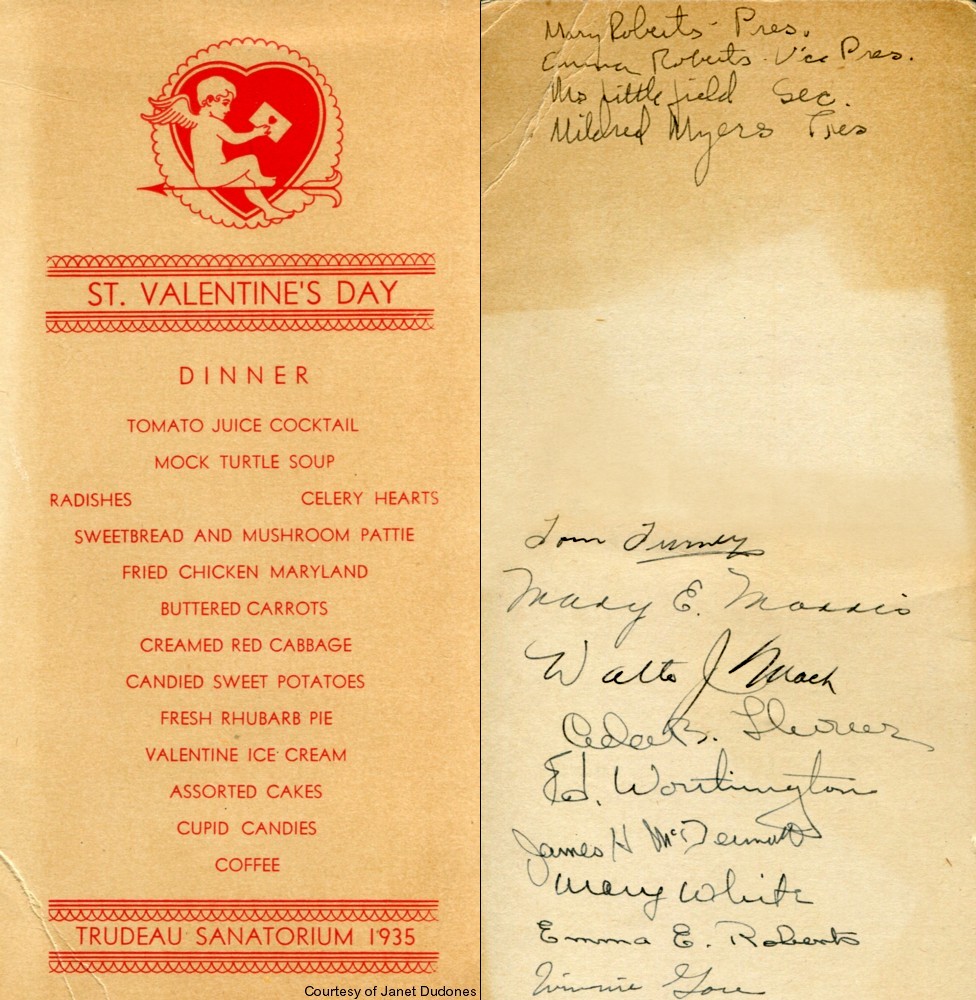 ST. VALENTINE'S DAY
DINNER
TOMATO JUICE COCKTAIL
MOCK TURTLE SOUP
RADISHES CELERY HEARTS
SWEETBREAD AND MUSHROOM PATTIE
FRIED CHICKEN MARYLAND
BUTTERED CARROTS
CREAMED RED CABBAGE
CANDIED SWEET POTATOES
FRESH RHUBARB PIE
VALENTINE ICE CREAM
ASSORTED CAKES
CUPID CANDIES
COFFEE
TRUDEAU SANATORIUM 1935
Courtesy of Janet Dudones
Mary Roberts - Pres.
Emma Roberts - Vice Pres.
Littlefield Sec.
Mildred Myers Tres
Tom
Mary E. Morris
J Mach
B.
Ed. Worthington
James H McDermott
Mary White
Emma E. Roberts
Winnie Gore